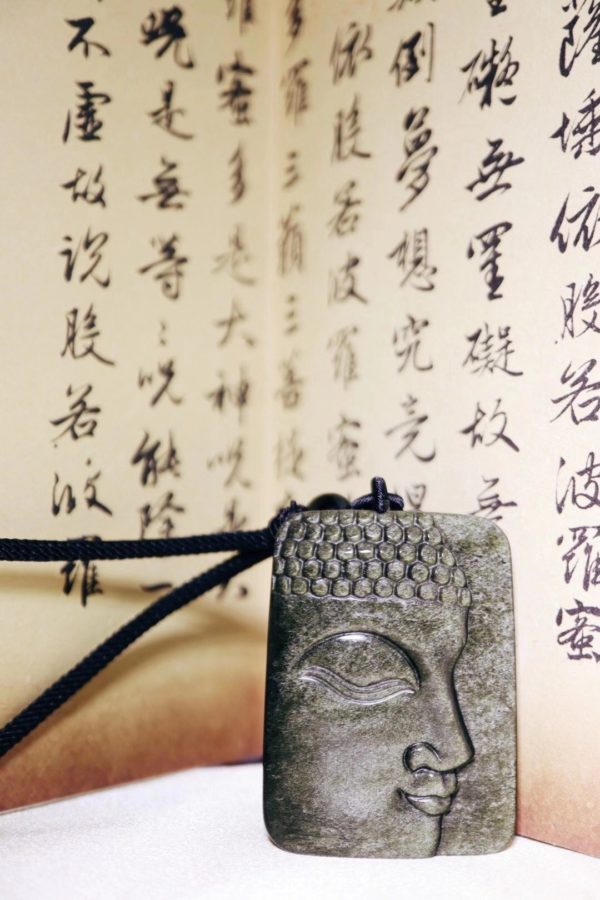 薩埵依般若波羅蜜
礙無罣礙故無
倒夢想究竟
依般若波羅蜜
多羅三藐三菩提
羅蜜多是大神咒是大
咒是無等〻咒能除一
不虛故說般若波羅